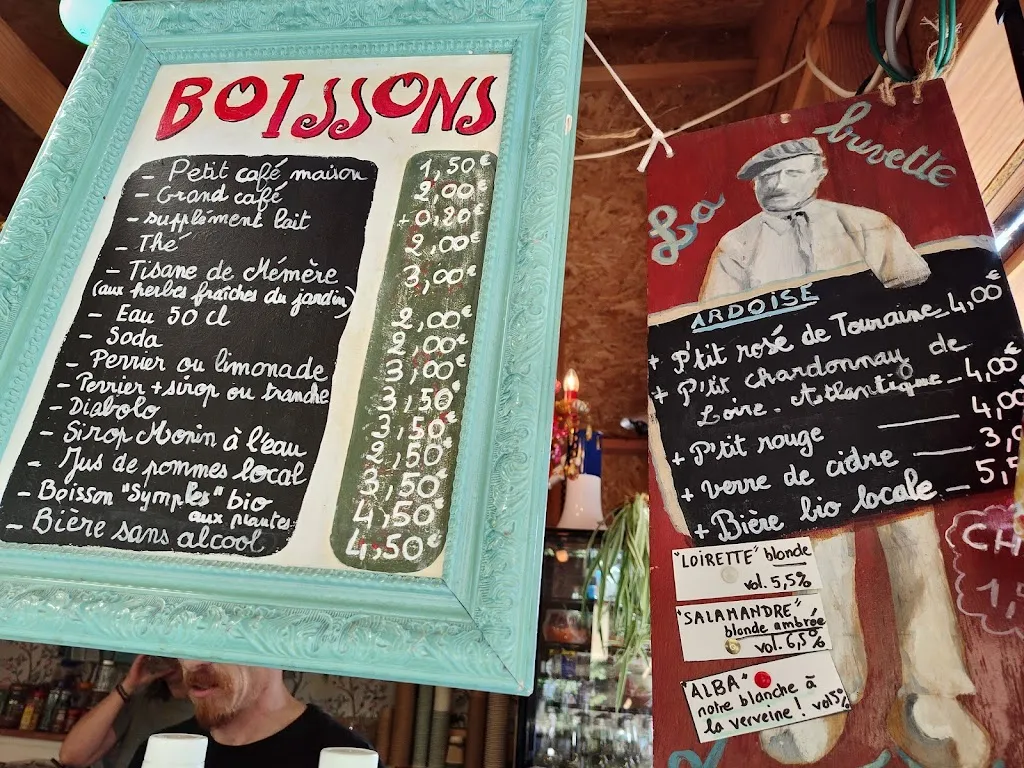 BOISSONS
- Petit café maison 1,50€
- Grand café 2,00€
- supplément lait +0,20€
- Thé 2,00€
- Tisane de Mémère 3,00€
(aux herbes fraîches du jardin)
- Eau 50 cl 2,00€
- Soda 2,00€
- Perrier ou limonade 3,00€
- Perrier + sirop ou tranche 3,50€
- Diabolo 3,50€
- Sirop Monin à l'eau 2,50€
- Jus de pommes local 3,50€
- Boisson "Symples" bio 4,50€
aux plantes
- Bière sans alcool 4,50€
La buvette
ARDOISE
+ P'tit rosé de Touraine - 4,00€
+ P'tit chardonnay de
Loire-Atlantique - 4,00
+ P'tit rouge 4,00
+ verre de cidre 3,0
+ Bière bio locale - 5,5
"LOIRETTE" blonde
vol. 5,5%
"SALAMANDRE"
blonde ambrée
vol. 6,5%
"ALBA"
notre blanche à
la verveine ! vol 5%
CH
1,